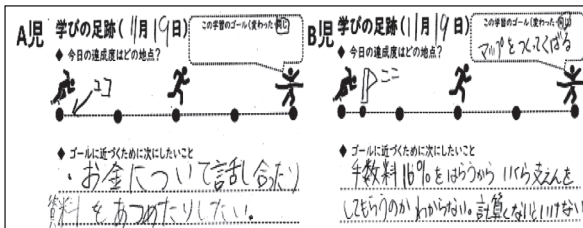 A児 学びの足跡(11月19日)
この学習のゴール(変わった・同じ)
◆ 今日の達成度はどの地点?
ココ
◆ ゴールに近づくために次にしたいこと
・お金について話し合たり
資料をあつめたりしたい。
B児 学びの足跡(11月19日)
この学習のゴール(変わった・同じ)
マップをつくってくばる
◆ 今日の達成度はどの地点?
ここ
◆ ゴールに近づくために次にしたいこと
手数料16%をはらうから いくら支えんを
してもらうのか わからない。計算しないといけない